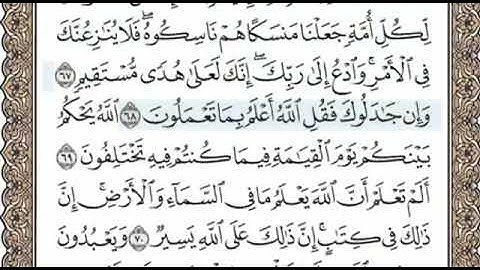 لِّكُلِّ أُمَّةٍ جَعَلْنَا مَنسَكًا هُمْ نَاسِكُوهُ ۖ فَلَا يُنَٰزِعُنَّكَ
فِي ٱلْأَمْرِ ۚ وَٱدْعُ إِلَىٰ رَبِّكَ ۖ إِنَّكَ لَعَلَىٰ هُدًى مُّسْتَقِيمٍ ٦٧
وَإِن جَٰدَلُوكَ فَقُلِ ٱللَّهُ أَعْلَمُ بِمَا تَعْمَلُونَ ٦٨ ٱللَّهُ يَحْكُمُ
بَيْنَكُمْ يَوْمَ ٱلْقِيَٰمَةِ فِيمَا كُنتُمْ فِيهِ تَخْتَلِفُونَ ٦٩
أَلَمْ تَعْلَمْ أَنَّ ٱللَّهَ يَعْلَمُ مَا فِي ٱلسَّمَآءِ وَٱلْأَرْضِ ۗ إِنَّ
ذَٰلِكَ فِي كِتَٰبٍ ۚ إِنَّ ذَٰلِكَ عَلَى ٱللَّهِ يَسِيرٌ ٧٠ وَيَعْبُدُونَ